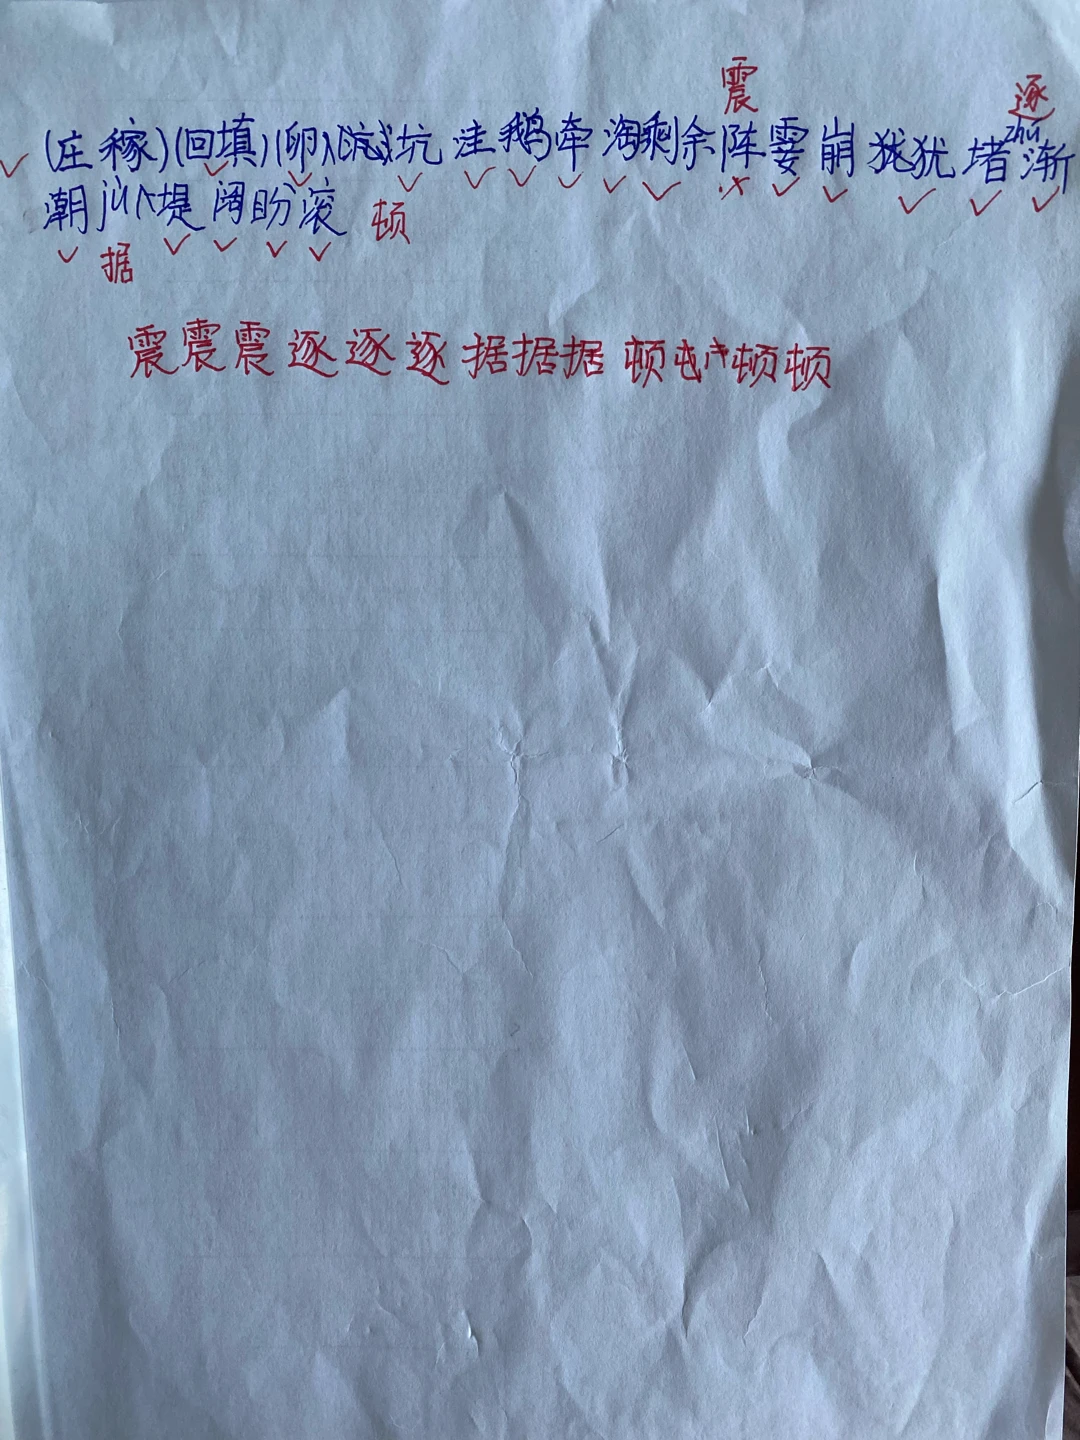 震 逐
zhú
(庄稼)(回填)(卵)坑 洼鹅牵 淘剩余阵霎崩犹犹堵渐
潮 堤阔盼滚 顿
据
震震震逐逐逐据据据 顿 顿顿